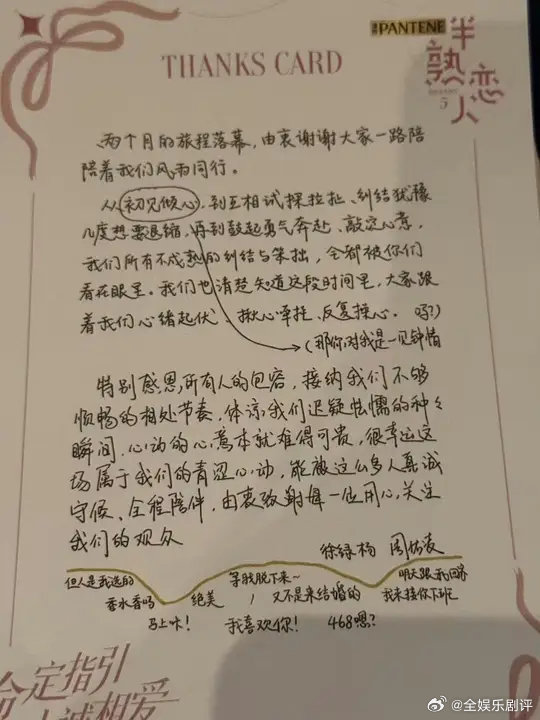 PANTENE
半熟恋人
5
THANKS CARD
两个月的旅程落幕，由衷谢谢大家一路陪
陪着我们风雨同行。
从初见倾心，到互相试探拉扯、纠结犹豫
几度想要退缩，再到鼓起勇气奔赴、敲定心意，
我们所有不成熟的纠结与笨拙，全都被你们
看在眼里。我们也清楚知道这段时间里，大家跟
着我们心绪起伏、揪心牵挂、反复操心。
(那你对我是一见钟情吗?)
特别感恩所有人的包容，接纳我们不够
顺畅的相处节奏，体谅我们迟疑怯懦的种々
瞬间，心动的心意本就难得可贵，很幸运这
场属于我们的青涩心动，能被这么多人真诚
守候、全程陪伴，由衷致谢每一位用心关注
我们的观众
徐绿杨
但人是我选的
等我脱下来~
明天跟我回家
香水香吗
绝美！
又不是来结婚的
我来接你下班
马上咔！
我喜欢你！
468嗯？
命定指引
诚相爱
@全娱乐剧评